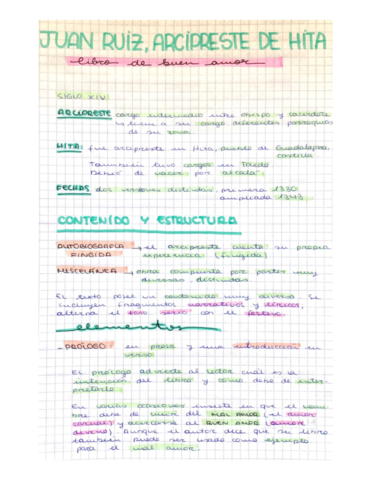 JUAN RUIZ, ARCIPRESTE DE HITA
libro de buen amor
SIGLO XIV
ARCIPRESTE cargo intermedio entre obispo y sacerdote
tiene a su cargo diferentes parroquias
de su zona
HITA: fue arcipreste en Hita, pueblo de Guadalajara,
castilla
También tuvo cargos en Toledo
de nacer por alcalá.
FECHAS dos versiones distintas, primera 1330
ampliada 1343
CONTENIDO Y ESTRUCTURA
AUTOBIOGRAFÍA, el arcipreste cuenta su propia
FINGIDA experiencia (fingida)
MISCELÁNEA, obra compuesta por partes muy
diversas, distintas
El texto posee un contenido muy diverso se
incluyen fragmentos narrativos y líricos,
alterna el tono serio con el festivo.
elementos
- PRÓLOGO en prosa y una introducción en
verso
El prólogo advierte al lector cuál es la
intención del libro y cómo debe de inter-
pretarlo.
En varias ocasiones insiste en que el hom-
bre debe de huir del MAL AMOR (el amor
carnal) y acercarse al BUEN AMOR (amor
divino). Aunque el autor dice que su libro
también puede ser usado como ejemplo
para el mal amor.